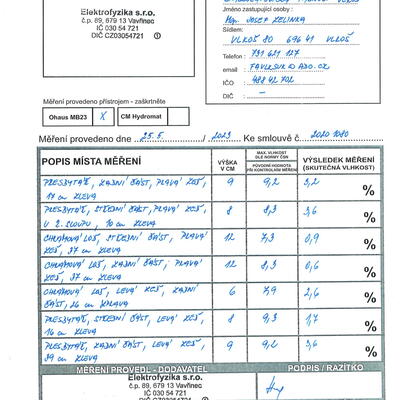 Elektrofyzika s.r.o.
č.p. 89, 679 13 Vavřinec
IČ 030 54 721
DIČ CZ03054721
Jméno zastupující osoby :
Mgr. JOSEF ZELINKA
Sídlem:
VLKOŠ 80 696 41 VLKOŠ
Telefon : 731 621 127
email :
IČO 488 42 702
DIČ –
Měření provedeno přístrojem - zaškrtněte
Ohaus MB23 X CM Hydromat
Měření provedeno dne 25.5. / 2023 Ke smlouvě č. 2020 1080
POPIS MÍSTA MĚŘENÍ VÝŠKA V CM MAX. VLHKOST DLE NORMY ČSN PŮVODNÍ HODNOTA PŘI KONTROLNÍM MĚŘENÍ VÝSLEDEK MĚŘENÍ (SKUTEČNÁ VLHKOST)
PRESBYTÁŘ, ZADNÍ ČÁST, PRAVÁ ZEĎ, 9 9,2 3,2 %
17 cm ZLEVA
PRESBYTÁŘ, STŘEDNÍ ČÁST, PRAVÁ ZEĎ, 8 8,3 3,6 %
U 2. SLOUPU, 10 cm ZLEVA
CHRÁMOVÁ LOĎ, STŘEDNÍ ČÁST, PRAVÁ 12 7,3 0,9 %
ZEĎ, 37 cm ZLEVA
CHRÁMOVÁ LOĎ, ZADNÍ ČÁST, PRAVÁ 12 8,3 0,6 %
ZEĎ, 37 cm ZLEVA
CHRÁMOVÁ LOĎ, LEVÁ ZEĎ, ZADNÍ 6 7,9 2,6 %
ČÁST, 26 cm ZPRAVA
PRESBYTÁŘ, STŘEDNÍ ČÁST, LEVÁ ZEĎ, 8 9,3 1,7 %
16 cm ZLEVA
PRESBYTÁŘ, ZADNÍ ČÁST, LEVÁ ZEĎ, 9 9,2 3,6 %
39 cm ZLEVA
MĚŘENÍ PROVEDL - DODAVATEL PODPIS / RAZÍTKO
Elektrofyzika s.r.o.
č.p. 89, 679 13 Vavřinec
IČ 030 54 721